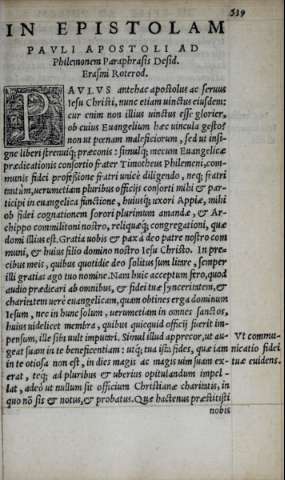 539
IN EPISTOLAM
PAVLI APOSTOLI AD
Philemonem Paraphrasis Desid.
Erasmi Roterod.
PAVLVS antehac apostolus ac seruus
Iesu Christi, nunc etiam uinctus eiusdem:
cur enim non illius uinctus esse glorier,
ob cuius Euangelium hæc uincula gesto?
non ut pœnam maleficiorum, sed ut insi-
gne liberi strenuiq; præconis: simulq; mecum Euangelicæ
prædicationis consortio frater Timotheus Philemoni, com-
munis fidei professione fratri unicè diligendo, neq; fratri
tantùm, uerumetiam pluribus officijs consorti mihi & par-
ticipi in euangelica functione, huiusq; uxori Appiæ, mihi
ob fidei cognationem sorori plurimum amandæ, & Ar-
chippo commilitoni nostro, reliquæq; congregationi, quæ
domi illius est. Gratia uobis & pax à deo patre nostro com
muni, & huius filio domino nostro Iesu Christo. In pre-
cibus meis, quibus quotidie deo solitus sum litare, semper
illi gratias ago tuo nomine. Nam huic acceptum fero, quod
audio prædicari ab omnibus, & fidei tuæ synceritatem, &
charitatem uerè euangelicam, quam obtines erga dominum
Iesum, nec in hunc solum, uerumetiam in omnes sanctos,
huius uidelicet membra, quibus quicquid officij fuerit im-
pensum, ille sibi uult imputari. Simul illud apprecor, ut au-
geat suam in te beneficentiam: utq; tua ista fides, quæ iam
in te otiosa non est, in dies magis ac magis uim suam ex-
erat, teq; ad pluribus & uberius opitulandum impel-
lat, adeò ut nullum sit officium Christianæ charitatis, in
quo nõ sis & notus, & probatus. Quæ hactenus præstitisti
nobis
Vt commu-
nicatio fidei
tuæ euidens.